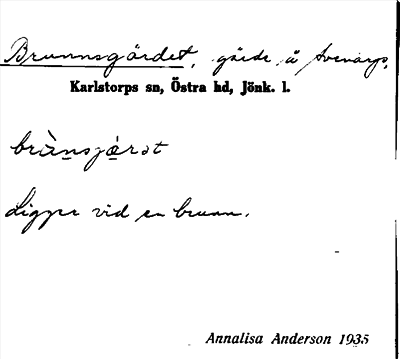 Brunnsgärdet, gärde å Avenarp,
Karlstorps sn, Östra hd, Jönk. l.
brùnsjæ̀rət
Ligger vid en brunn.
Annalisa Anderson 1935